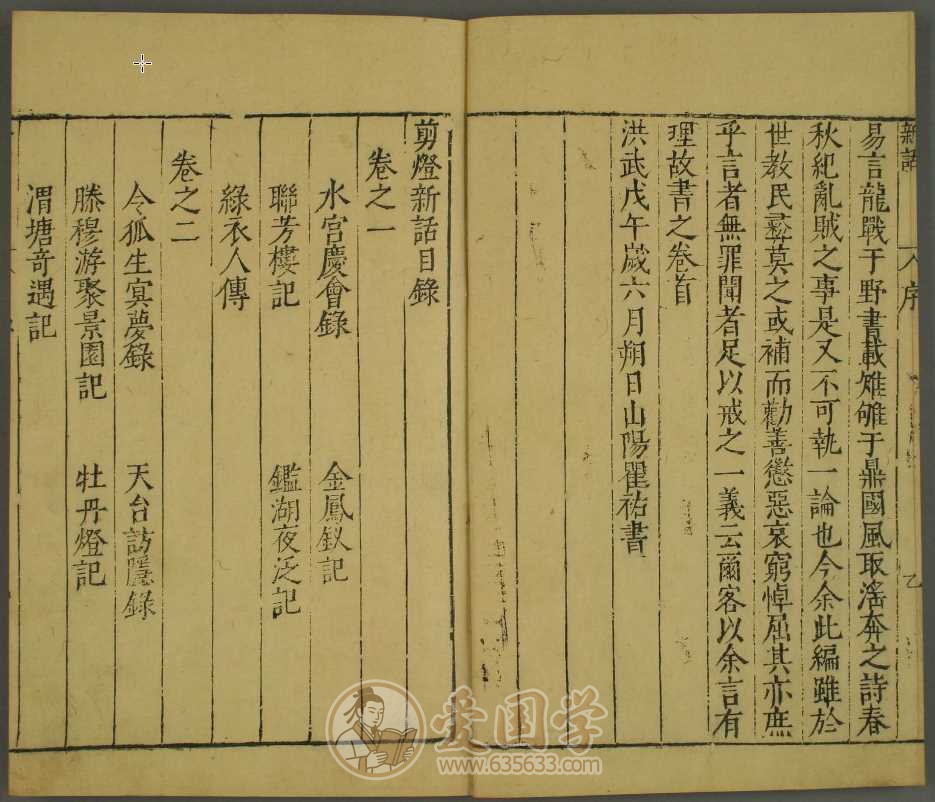 新話
序
易言龍戰于野書載雉雊于鼎國風取滛奔之詩春
秋紀亂賊之事是又不可執一論也今余此編雖於
世教民彞莫之或補而勸善懲惡哀窮悼屈其亦庶
乎言者無罪聞者足以戒之一義云爾客以余言有
理故書之卷首
洪武戊午歲六月朔日山陽瞿祐書
剪燈新話目錄
卷之一
水宮慶會錄 金鳳釵記
聯芳樓記 鑑湖夜泛記
綠衣人傳
卷之二
令狐生冥夢錄 天台訪隱錄
滕穆游聚景園記 牡丹燈記
渭塘奇遇記
爱国学
www.635633.com